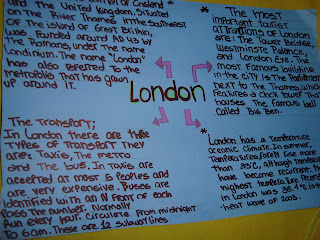 capital of England
and the United Kingdom. Situated
the River Thames in the southeast
of the island of Great Britain,
was founded around AD 43 by
the Romans, under the name
Londinium. The name "London"
has also referred to the
metropolis that has grown
up around it.
The most
important tourist
attractions of London
are: The Tower Bridge,
Westminster Palace,
and London Eye. The
most famous building
in the city is the Parliament
next to the Thames, which
features a clock tower that
houses the famous bell
called Big Ben.
London
The Transport;
In London there are three
types of transport they
are: Taxis, the metro
and the bus. In taxis are
accepted at most 5 peoples and
are very expensive. Buses are
identified with an N front of each
pass the number. Normally
run every half. Circulate from midnight
to 6am. These are 12 subway lines
* London has a temperature
oceanic climate. In summer,
temperatures rarely rise more
than 33°C, although temperatures
have become recurrent. The
highest temperature recorded
in London was 38.1°C in the
heat wave of 2003.